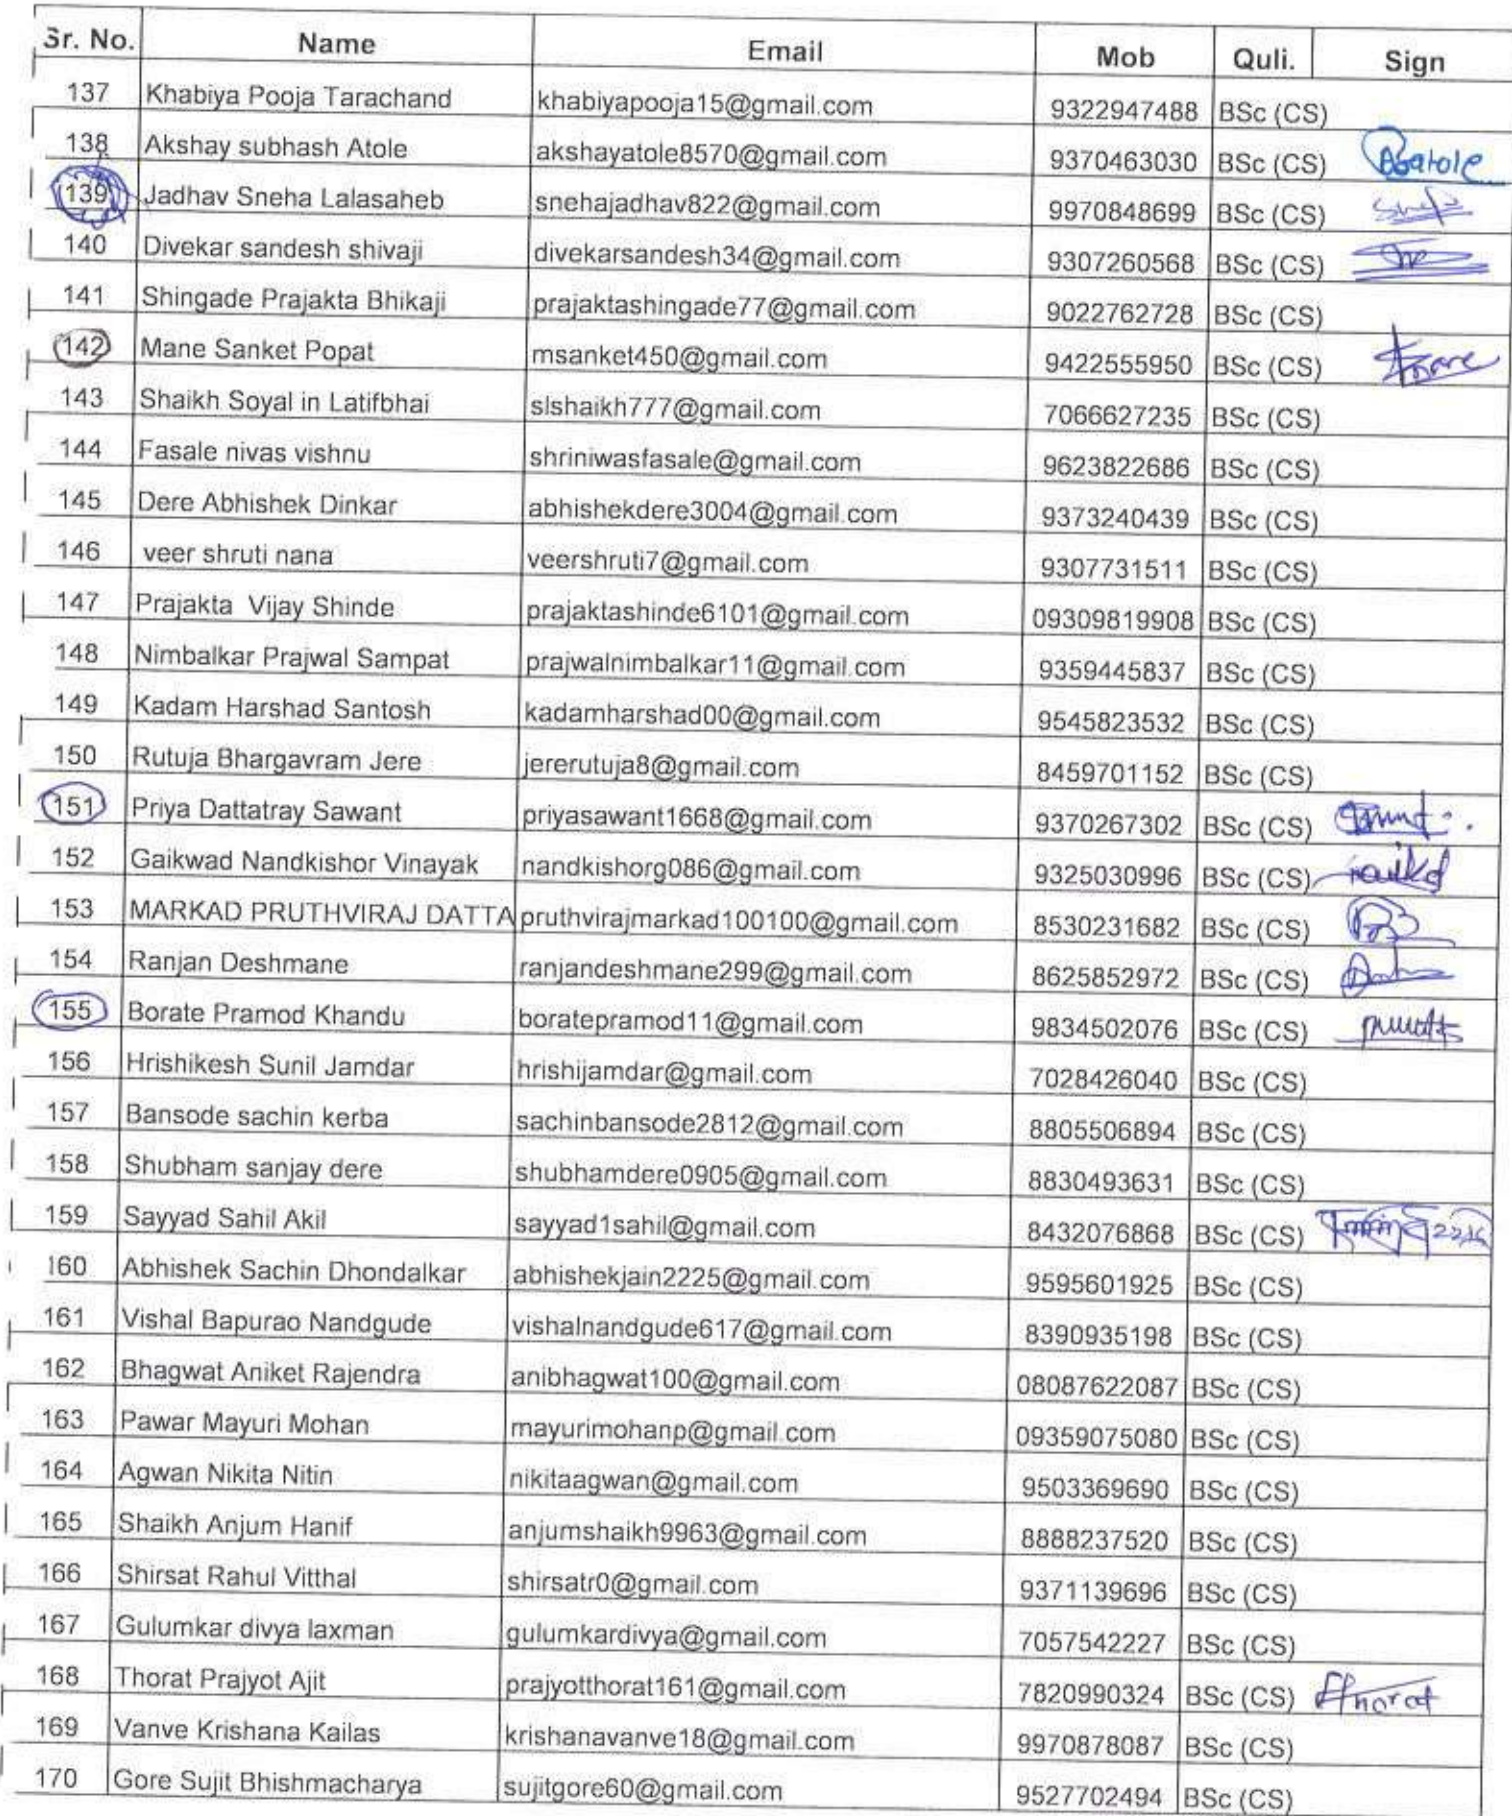 Sr. No. Name Email Mob Quli. Sign
137 Khabiya Pooja Tarachand khabiyapooja15@gmail.com 9322947488 BSc (CS)
138 Akshay subhash Atole akshayatole8570@gmail.com 9370463030 BSc (CS)
139 Jadhav Sneha Lalasaheb snehajadhav822@gmail.com 9970848699 BSc (CS)
140 Divekar sandesh shivaji divekarsandesh34@gmail.com 9307260568 BSc (CS)
141 Shingade Prajakta Bhikaji prajaktashingade77@gmail.com 9022762728 BSc (CS)
142 Mane Sanket Popat msanket450@gmail.com 9422555950 BSc (CS)
143 Shaikh Soyal in Latifbhai slshaikh777@gmail.com 7066627235 BSc (CS)
144 Fasale nivas vishnu shriniwasfasale@gmail.com 9623822686 BSc (CS)
145 Dere Abhishek Dinkar abhishekdere3004@gmail.com 9373240439 BSc (CS)
146 veer shruti nana veershruti7@gmail.com 9307731511 BSc (CS)
147 Prajakta Vijay Shinde prajaktashinde6101@gmail.com 09309819908 BSc (CS)
148 Nimbalkar Prajwal Sampat prajwalnimbalkar11@gmail.com 9359445837 BSc (CS)
149 Kadam Harshad Santosh kadamharshad00@gmail.com 9545823532 BSc (CS)
150 Rutuja Bhargavram Jere jererutuja8@gmail.com 8459701152 BSc (CS)
151 Priya Dattatray Sawant priyasawant1668@gmail.com 9370267302 BSc (CS)
152 Gaikwad Nandkishor Vinayak nandkishorg086@gmail.com 9325030996 BSc (CS)
153 MARKAD PRUTHVIRAJ DATTA pruthvirajmarkad100100@gmail.com 8530231682 BSc (CS)
154 Ranjan Deshmane ranjandeshmane299@gmail.com 8625852972 BSc (CS)
155 Borate Pramod Khandu boratepramod11@gmail.com 9834502076 BSc (CS)
156 Hrishikesh Sunil Jamdar hrishijamdar@gmail.com 7028426040 BSc (CS)
157 Bansode sachin kerba sachinbansode2812@gmail.com 8805506894 BSc (CS)
158 Shubham sanjay dere shubhamdere0905@gmail.com 8830493631 BSc (CS)
159 Sayyad Sahil Akil sayyad1sahil@gmail.com 8432076868 BSc (CS)
160 Abhishek Sachin Dhondalkar abhishekjain2225@gmail.com 9595601925 BSc (CS)
161 Vishal Bapurao Nandgude vishalnandgude617@gmail.com 8390935198 BSc (CS)
162 Bhagwat Aniket Rajendra anibhagwat100@gmail.com 08087622087 BSc (CS)
163 Pawar Mayuri Mohan mayurimohanp@gmail.com 09359075080 BSc (CS)
164 Agwan Nikita Nitin nikitaagwan@gmail.com 9503369690 BSc (CS)
165 Shaikh Anjum Hanif anjumshaikh9963@gmail.com 8888237520 BSc (CS)
166 Shirsat Rahul Vitthal shirsatr0@gmail.com 9371139696 BSc (CS)
167 Gulumkar divya laxman gulumkardivya@gmail.com 7057542227 BSc (CS)
168 Thorat Prajyot Ajit prajyotthorat161@gmail.com 7820990324 BSc (CS)
169 Vanve Krishana Kailas krishanavanve18@gmail.com 9970878087 BSc (CS)
170 Gore Sujit Bhishmacharya sujitgore60@gmail.com 9527702494 BSc (CS)